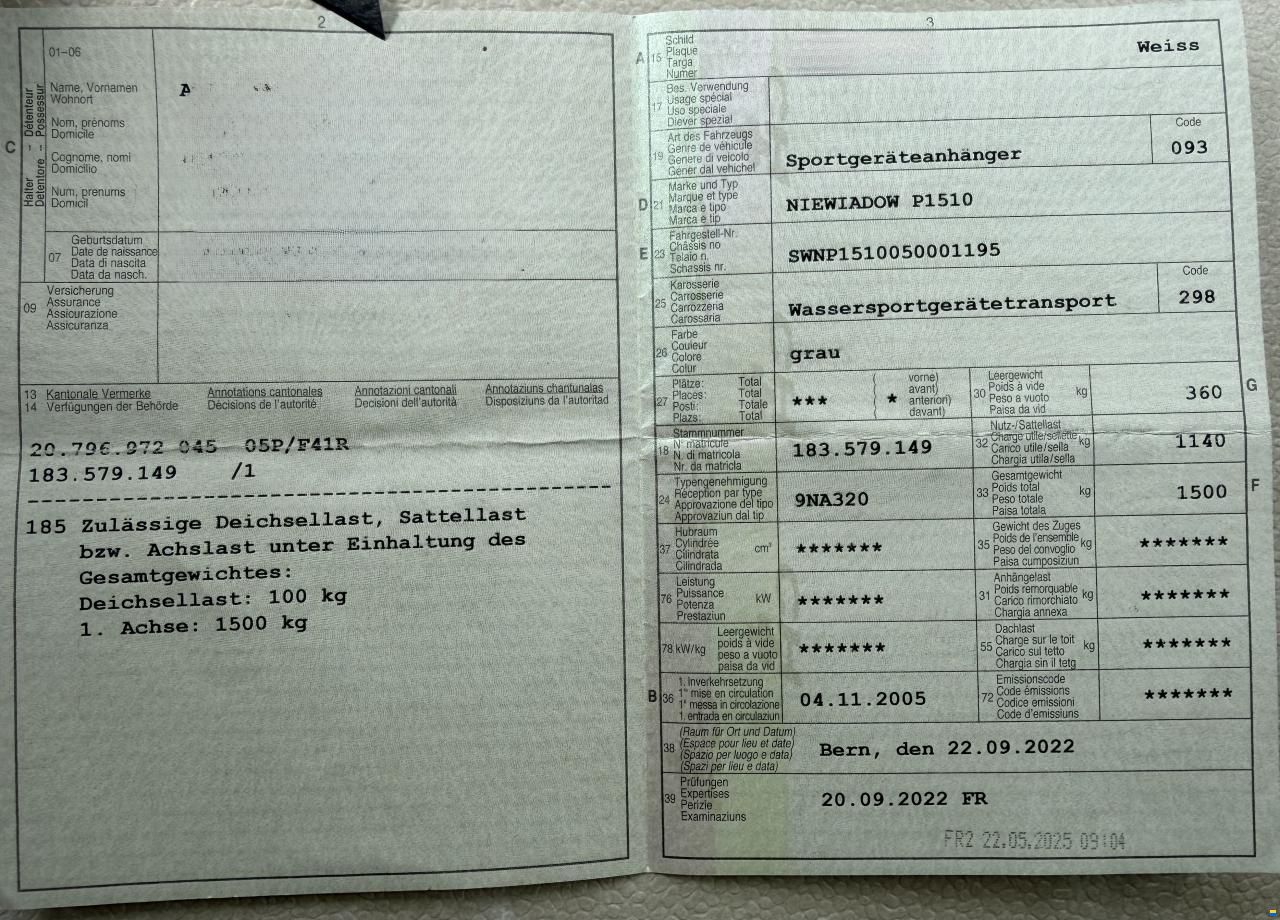 2
01-06
Halter - Détenteur
Detentore - Possessur
C
Name, Vornamen
Wohnort
A
Nom, prénoms
Domicile
Cognome, nomi
Domicilio
Num, prenums
Domicil
07
Geburtsdatum
Date de naissance
Data di nascita
Data da nasch.
09
Versicherung
Assurance
Assicurazione
Assicuranza
13 Kantonale Vermerke Annotations cantonales Annotazioni cantonali Annotaziuns chantunalas
14 Verfügungen der Behörde Décisions de l'autorité Decisioni dell'autorità Disposiziuns da l'autoritad
20.796.972 045 05P/F41R
183.579.149 /1
185 Zulässige Deichsellast, Sattellast
bzw. Achslast unter Einhaltung des
Gesamtgewichtes:
Deichsellast: 100 kg
1. Achse: 1500 kg
3
A 15
Schild
Plaque
Targa
Numer
Weiss
17
Bes. Verwendung
Usage spécial
Uso speciale
Diever spezial
19
Art des Fahrzeugs
Genre de véhicule
Genere di veicolo
Gener dal vehichel
Sportgeräteanhänger
Code
093
D 21
Marke und Typ
Marque et type
Marca e tipo
Marca e tip
NIEWIADOW P1510
E 23
Fahrgestell-Nr.
Châssis no
Telaio n.
Schassis nr.
SWNP1510050001195
25
Karosserie
Carrosserie
Carrozzeria
Carossaria
Wassersportgerätetransport
Code
298
26
Farbe
Couleur
Colore
Colur
grau
27
Plätze: Total
Places: Total
Posti: Totale
Plazs: Total
***
( vorne)
( avant)
( anteriori)
( davant)
*
30
Leergewicht
Poids à vide
Peso a vuoto
Paisa da vid
kg
360
G
18
Stammnummer
N° matricule
N. di matricola
Nr. da matricla
183.579.149
32
Nutz-/Sattellast
Charge utile/sellette
Carico utile/sella
Chargia utila/sella
kg
1140
24
Typengenehmigung
Réception par type
Approvazione del tipo
Approvaziun dal tip
9NA320
33
Gesamtgewicht
Poids total
Peso totale
Paisa totala
kg
1500
F
37
Hubraum
Cylindrée
Cilindrata
Cilindrada
cm³
*******
35
Gewicht des Zuges
Poids de l'ensemble
Peso del convoglio
Paisa cumposiziun
kg
*******
76
Leistung
Puissance
Potenza
Prestaziun
kW
*******
31
Anhängelast
Poids remorquable
Carico rimorchiato
Chargia annexa
kg
*******
78 kW/kg
Leergewicht
poids à vide
peso a vuoto
paisa da vid
*******
55
Dachlast
Charge sur le toit
Carico sul tetto
Chargia sin il tetg
kg
*******
B 36
1. Inverkehrsetzung
1re mise en circulation
1a messa in circolazione
1. entrada en circulaziun
04.11.2005
72
Emissionscode
Code émissions
Codice emissioni
Code d'emissiuns
*******
38
(Raum für Ort und Datum)
(Espace pour lieu et date)
(Spazio per luogo e data)
(Spazi per lieu e data)
Bern, den 22.09.2022
39
Prüfungen
Expertises
Perizie
Examinaziuns
20.09.2022 FR
FR2 22.05.2025 09:04